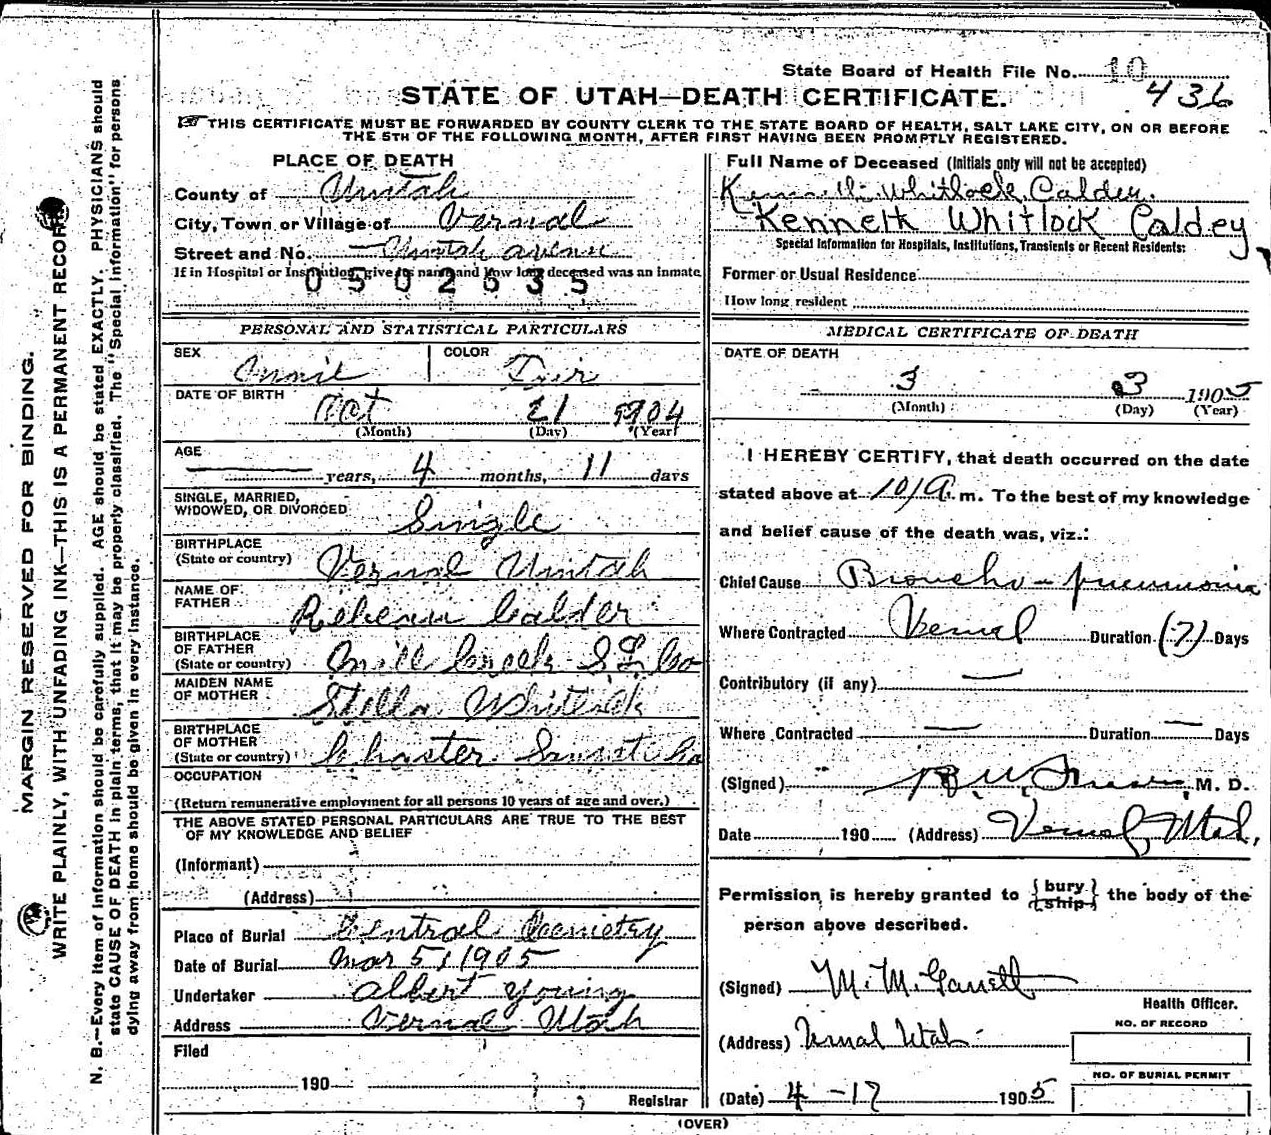 State Board of Health File No. 10
436
STATE OF UTAH—DEATH CERTIFICATE.
THIS CERTIFICATE MUST BE FORWARDED BY COUNTY CLERK TO THE STATE BOARD OF HEALTH, SALT LAKE CITY, ON OR BEFORE
THE 5TH OF THE FOLLOWING MONTH, AFTER FIRST HAVING BEEN PROMPTLY REGISTERED.
MARGIN RESERVED FOR BINDING.
WRITE PLAINLY, WITH UNFADING INK—THIS IS A PERMANENT RECORD.
N. B.—Every item of information should be carefully supplied. AGE should be stated EXACTLY. PHYSICIANS should
state CAUSE OF DEATH in plain terms, that it may be properly classified. The "Special Information" for persons
dying away from home should be given in every instance.
PLACE OF DEATH
County of Uintah
City, Town or Village of Vernal
Street and No. Uintah avenue
If in Hospital or Institution, give its name and how long deceased was an inmate
0502635
PERSONAL AND STATISTICAL PARTICULARS
SEX
COLOR
DATE OF BIRTH
Oct 21 1904
(Month) (Day) (Year)
AGE
years, 4 months, 11 days
SINGLE, MARRIED,
WIDOWED, OR DIVORCED Single
BIRTHPLACE
(State or country) Vernal Uintah
NAME OF
FATHER Calder
BIRTHPLACE
OF FATHER
(State or country) Mill Creek S L Co
MAIDEN NAME
OF MOTHER Stella Whitlock
BIRTHPLACE
OF MOTHER
(State or country)
OCCUPATION
(Return remunerative employment for all persons 10 years of age and over.)
THE ABOVE STATED PERSONAL PARTICULARS ARE TRUE TO THE BEST
OF MY KNOWLEDGE AND BELIEF
(Informant)
(Address)
Place of Burial Central Cemetery
Date of Burial Mar 5, 1905
Undertaker Albert Young
Address Vernal Utah
Filed
190
Registrar
Full Name of Deceased (Initials only will not be accepted)
Kenneth Whitlock Calder.
Kenneth Whitlock Caldey
Special Information for Hospitals, Institutions, Transients or Recent Residents:
Former or Usual Residence
How long resident
MEDICAL CERTIFICATE OF DEATH
DATE OF DEATH
3 3 1905
(Month) (Day) (Year)
I HEREBY CERTIFY, that death occurred on the date
stated above at 10 A. m. To the best of my knowledge
and belief cause of the death was, viz.:
Chief Cause Broncho-pneumonia
Where Contracted Vernal Duration (7) Days
Contributory (if any) —
Where Contracted — Duration — Days
(Signed) M. D.
Date 190 (Address) Vernal, Utah,
Permission is hereby granted to {bury ship} the body of the
person above described.
(Signed) M. M. Garrett
Health Officer.
(Address) Vernal Utah
NO. OF RECORD
NO. OF BURIAL PERMIT
(Date) 4-17 1905
(OVER)